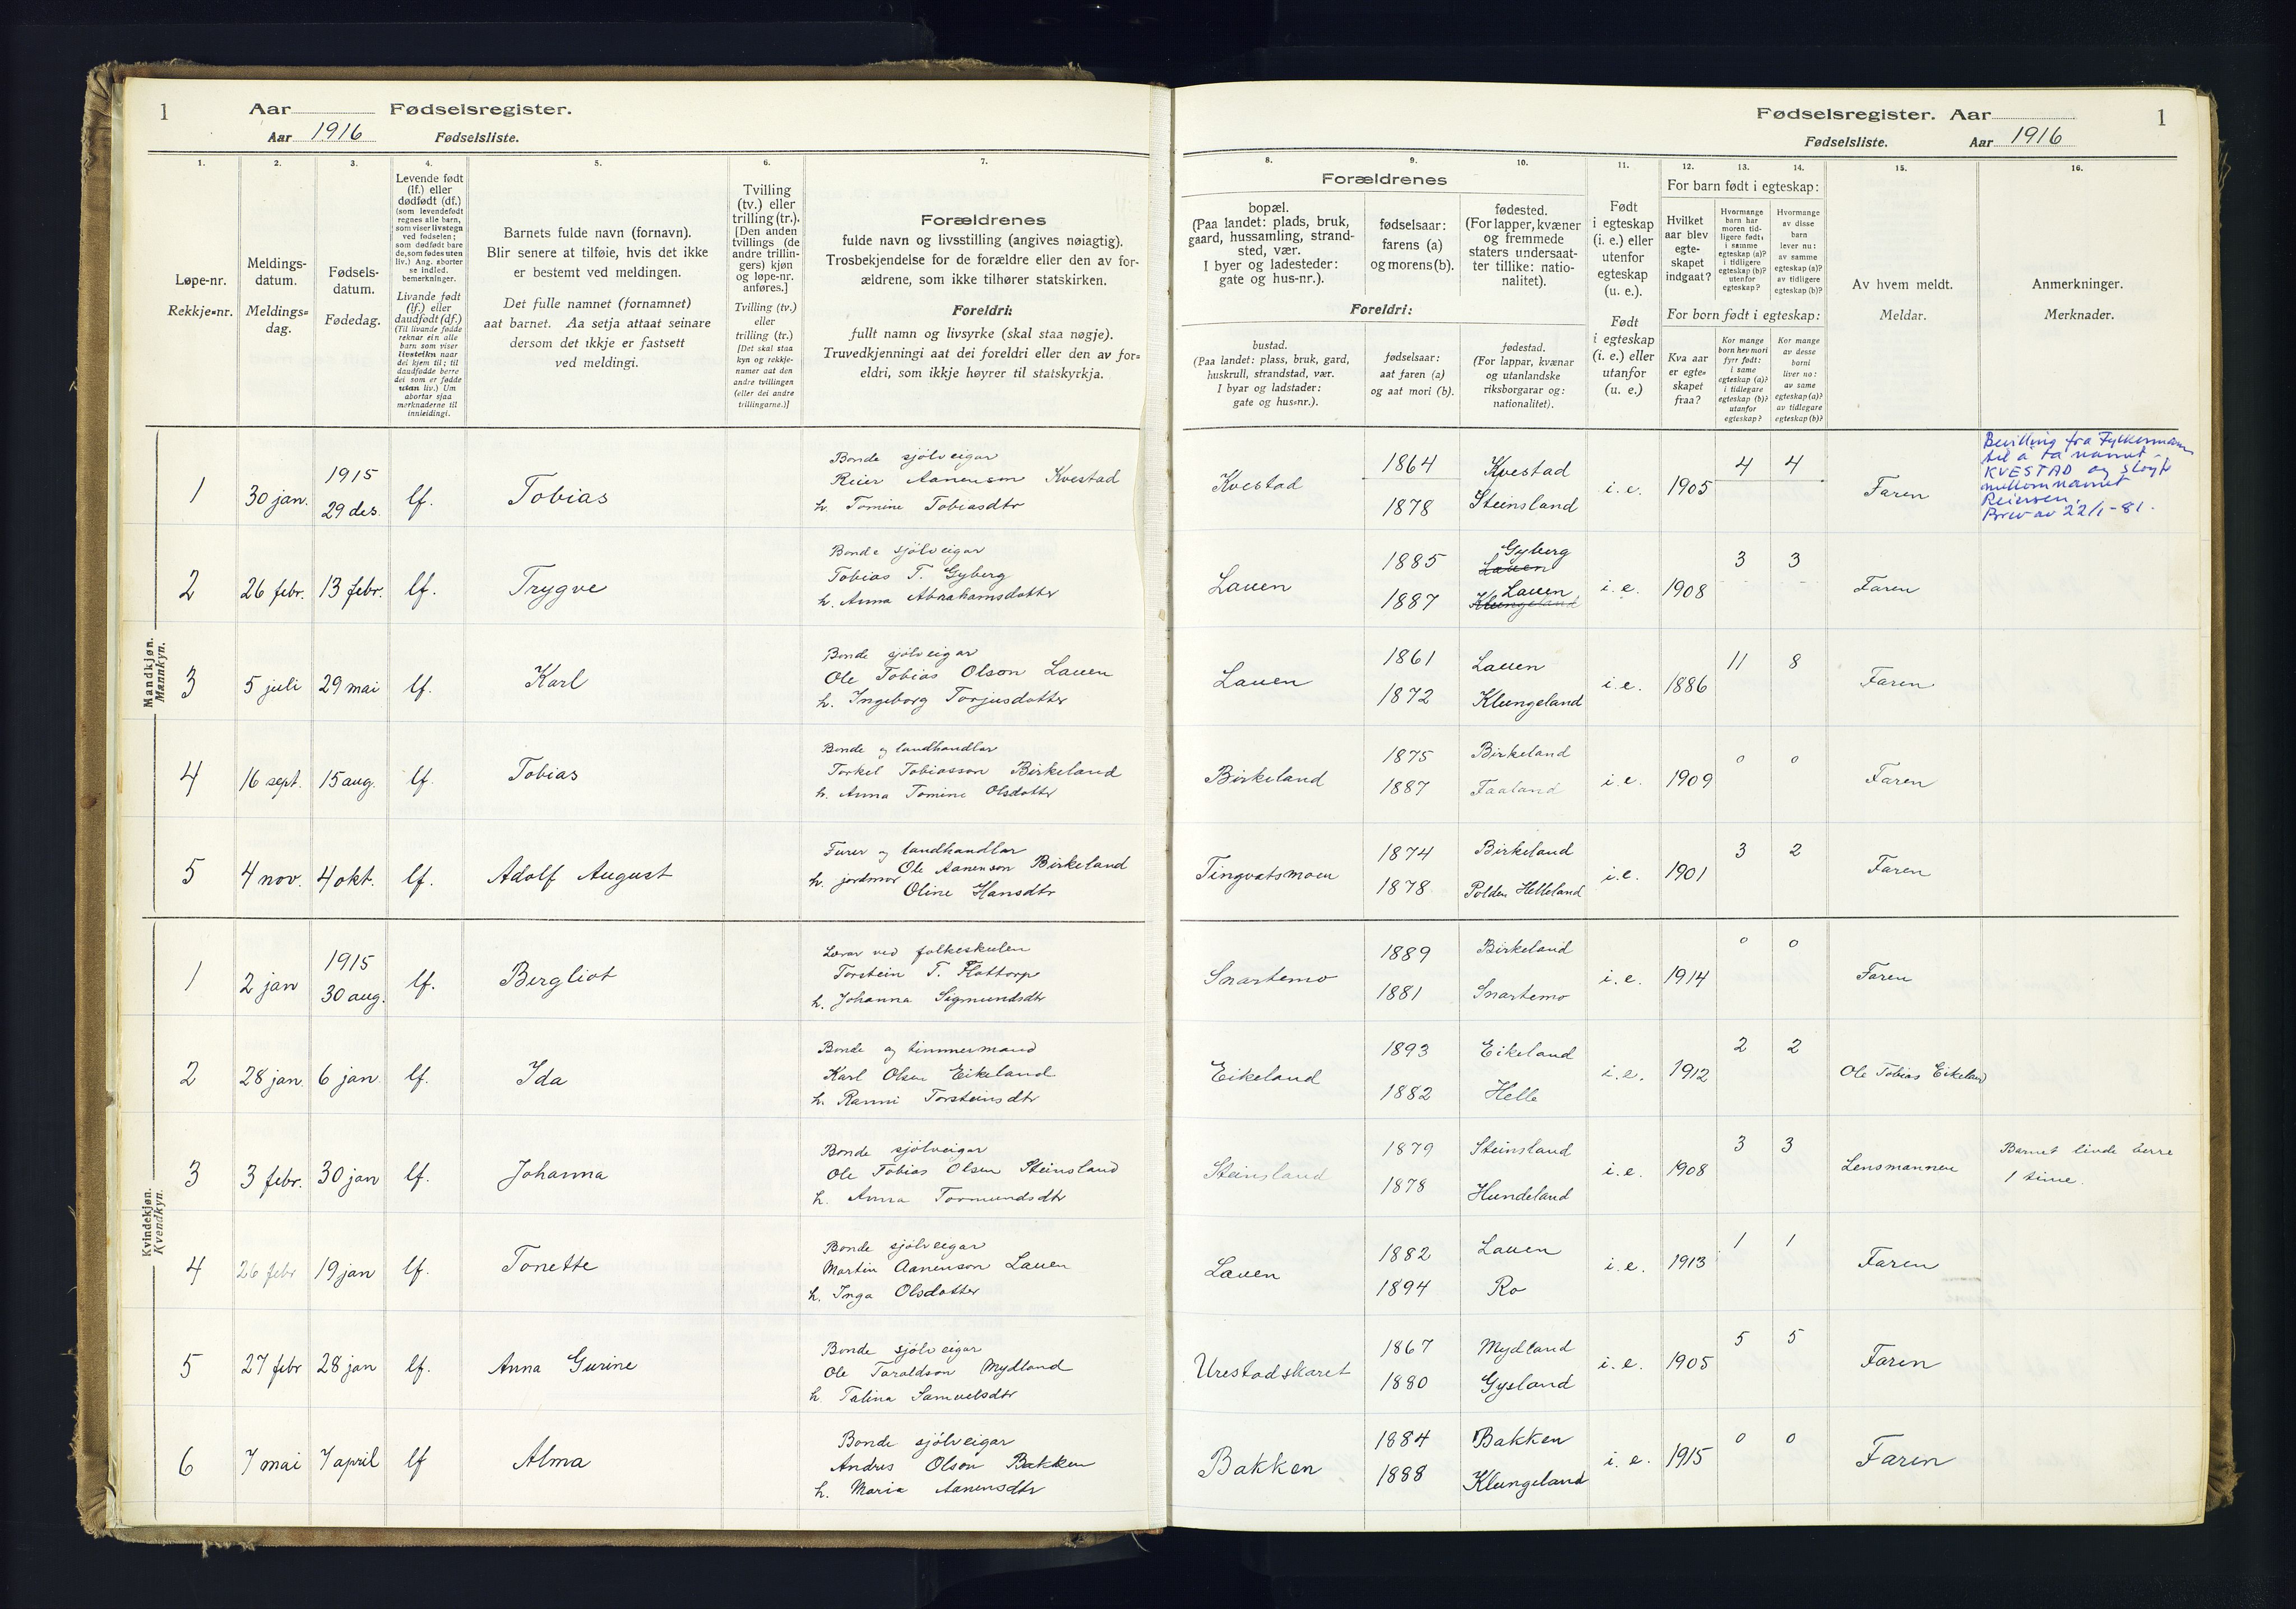 1 Aar Fødselsregister.
Aar 1916 Fødselsliste.
Fødselsregister. Aar 1
Fødselsliste. Aar 1916
1. 2. 3. 4. 5. 6. 7.
Løpe-nr.
Rekkje=nr.
Meldings-
datum.
Meldings=
dag.
Fødsels-
datum.
Fødedag.
Levende født
(lf.) eller
dødfødt (df.)
(som levendefødt
regnes alle barn,
som viser livstegn
ved fødselen;
som dødfødt bare
de, som fødes uten
liv.) Ang. aborter
se indled.
bemerkninger.
Livande født
(lf.) eller
daudfødt (df.)
(Til livande fødde
reknar ein alle
barn som viser
livsteikn naar
dei kjem til; til
daudfødde berre
dei som er fødde
utan liv.) Um
abortar sjaa
merknaderne til
innleidingi.
Barnets fulde navn (fornavn).
Blir senere at tilføie, hvis det ikke
er bestemt ved meldingen.
Det fulle namnet (fornamnet)
aat barnet. Aa setja attaat seinare
dersom det ikkje er fastsett
ved meldingi.
Tvilling
(tv.) eller
trilling (tr.).
[Den anden
tvillings (de
andre trillin-
gers) kjøn
og løpe-nr.
anføres.]
Tvilling (tv.)
eller
trilling (tr.)
[Det skal staa
kyn og rekkje-
numer aat den
andre tvillingen
(eller dei andre
trillingarne.)]
Forældrenes
fulde navn og livsstilling (angives nøiagtig).
Trosbekjendelse for de forældre eller den av for-
ældrene, som ikke tilhører statskirken.
Foreldri:
fullt namn og livsyrke (skal staa nøgje).
Truvedkjenningi aat dei foreldri eller den av for=
eldri, som ikkje høyrer til statskyrkja.
8. 9. 10. 11. 12. 13. 14. 15. 16.
Forældrenes
bopæl.
(Paa landet: plads, bruk,
gaard, hussamling, strand-
sted, vær.
I byer og ladesteder:
gate og hus-nr.).
fødselsaar:
farens (a)
og morens (b).
fødested.
(For lapper, kvæner
og fremmede
staters undersaat-
ter tillike: natio-
nalitet).
Foreldri:
bustad.
(Paa landet: plass, bruk, gard,
huskrull, strandstad, vær.
I byar og ladstader:
gate og hus=nr.).
fødselsaar:
aat faren (a)
og aat mori (b).
fødestad.
(For lappar, kvænar
og utanlandske
riksborgarar og:
nationalitet).
Født
i egteskap
(i. e.) eller
utenfor
egteskap
(u. e.).
Født
i egteskap
(i. e.) eller
utanfor
(u. e.)
For barn født i egteskap:
Hvilket
aar blev
egte-
skapet
indgaat?
Hvormange
barn har
moren tid-
ligere født:
i samme
egteskap (a)?
i tidligere
egteskap (b)?
utenfor
egteskap?
Hvormange
av disse
barn
lever nu:
av samme
egteskap (a)?
av tidligere
egteskap (b)?
For born født i egteskap:
Kva aar
er egte=
skapet
fraa?
Kor mange
born hev mori
fyrr født:
i same
egteskap (a)?
i tidlegare
egteskap (b)?
utanfor
egteskap?
Kor mange
av desse
borni
liver no:
av same
egteskap (a)?
av tidlegare
egteskap (b)?
Av hvem meldt.
Meldar.
Anmerkninger.
Merknader.
Mandkjøn.
Mannkyn.
1 30 jan. 1915 29 des. lf. Tobias
Bonde sjölveigar
Reier Aanenson Kvestad
h. Tomine Tobiasdtr
Kvestad 1864 Kvestad 1878 Steinsland i. e. 1905 4 4 Faren
Bevilling fra Fylkesmann
til å ta namnet
KVESTAD og sløyfe
mellomnamnet
Reiersen.
Brev av 22/1-81.
2 26 febr. 13 febr. lf. Trygve
Bonde sjölveigar
Tobias T. Gyberg
h. Anna Abrahamsdotter
Lauen 1885 Gyberg Lauen 1887 Lauen Klungeland i. e. 1908 3 3 Faren
3 5 juli 29 mai lf. Karl
Bonde sjölveigar
Ole Tobias Olson Lauen
h. Ingeborg Torjusdotter
Lauen 1861 Lauen 1872 Klungeland i. e. 1886 11 8 Faren
4 16 sept. 15 aug. lf. Tobias
Bonde og landhandlar
Torkel Tobiasson Birkeland
h. Anna Tomine Olsdotter
Birkeland 1875 Birkeland 1887 Faaland i. e. 1909 0 0 Faren
5 4 nov. 4 okt. lf. Adolf August
Furer og landhandlar
Ole Aanenson Birkeland
h. jordmor Oline Hansdtr
Tingvatsmoen 1874 Birkeland 1878 Polden Helleland i. e. 1901 3 2 Faren
Kvindekjøn.
Kvendkyn.
1 2 jan 1915 30 aug. lf. Bergliot
Lærar ved folkeskulen
Torstein T. Flottorp
h. Johanna Sigmundsdtr
Snartemo 1889 Birkeland 1881 Snartemo i. e. 1914 0 0 Faren
2 28 jan. 6 jan. lf. Ida
Bonde og timmermand
Karl Olsen Eikeland
h. Ranni Torsteinsdtr
Eikeland 1893 Eikeland 1882 Helle i. e. 1912 2 2 Ole Tobias Eikeland
3 3 febr. 30 jan lf. Johanna
Bonde sjölveigar
Ole Tobias Olsen Steinsland
h. Anna Tormundsdtr
Steinsland 1879 Steinsland 1878 Hundeland i. e. 1908 3 3 Lensmannen
Barnet livde berre
1 time.
4 26 febr 19 jan lf. Tonette
Bonde sjölveigar
Martin Aanenson Lauen
h. Inga Olsdotter
Lauen 1882 Lauen 1894 Ro i. e. 1913 1 1 Faren
5 27 febr 28 jan lf. Anna Gurine
Bonde sjölveigar
Ole Taraldson Mydland
h. Talina Samuelsdtr
Urestadskaret 1867 Mydland 1880 Gysland i. e. 1905 5 5 Faren
6 7 mai 7 april lf Alma
Bonde sjölveigar
Andres Olson Bakken
h. Maria Aanensdtr
Bakken 1884 Bakken 1888 Klungeland i. e. 1915 0 0 Faren